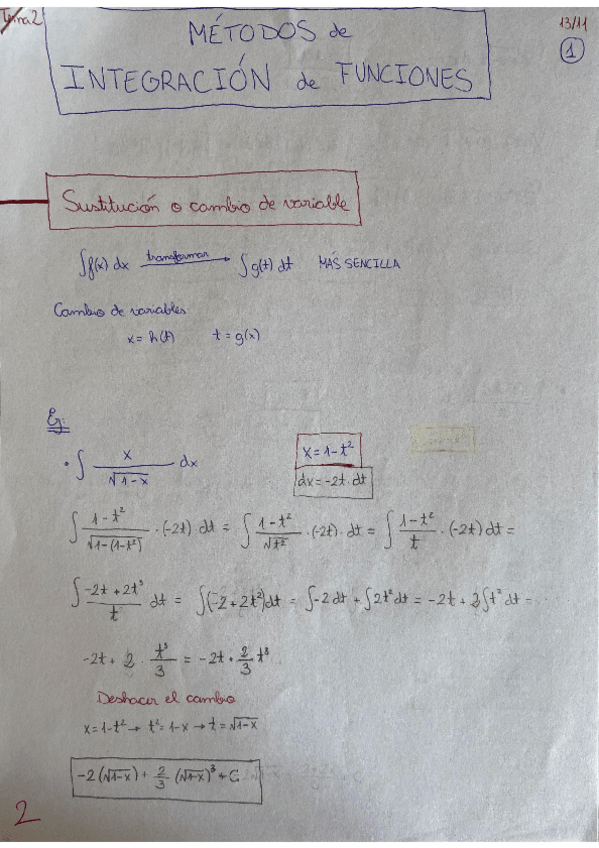 Tema 2
13/11
1
MÉTODOS de
INTEGRACIÓN de FUNCIONES
Sustitución o cambio de variable
∫f(x) dx transformar → ∫g(t) dt MÁS SENCILLA
Cambio de variables
x = h(t) t = g(x)
Ej:
• ∫ x/√(1-x) dx x = 1-t²
dx = -2t · dt
∫ (1-t²)/√(1-(1-t²)) · (-2t) · dt = ∫ (1-t²)/√t² · (-2t) · dt = ∫ (1-t²)/t · (-2t) dt =
∫ (-2t + 2t³)/t dt = ∫(-2 + 2t²)dt = ∫-2 dt + ∫2t² dt = -2t + 2∫t² dt = ...
-2t + 2 · t³/3 = -2t + 2/3 t³
Deshacer el cambio
x = 1-t² → t² = 1-x → t = √(1-x)
-2(√(1-x)) + 2/3 (√(1-x))³ + C
2